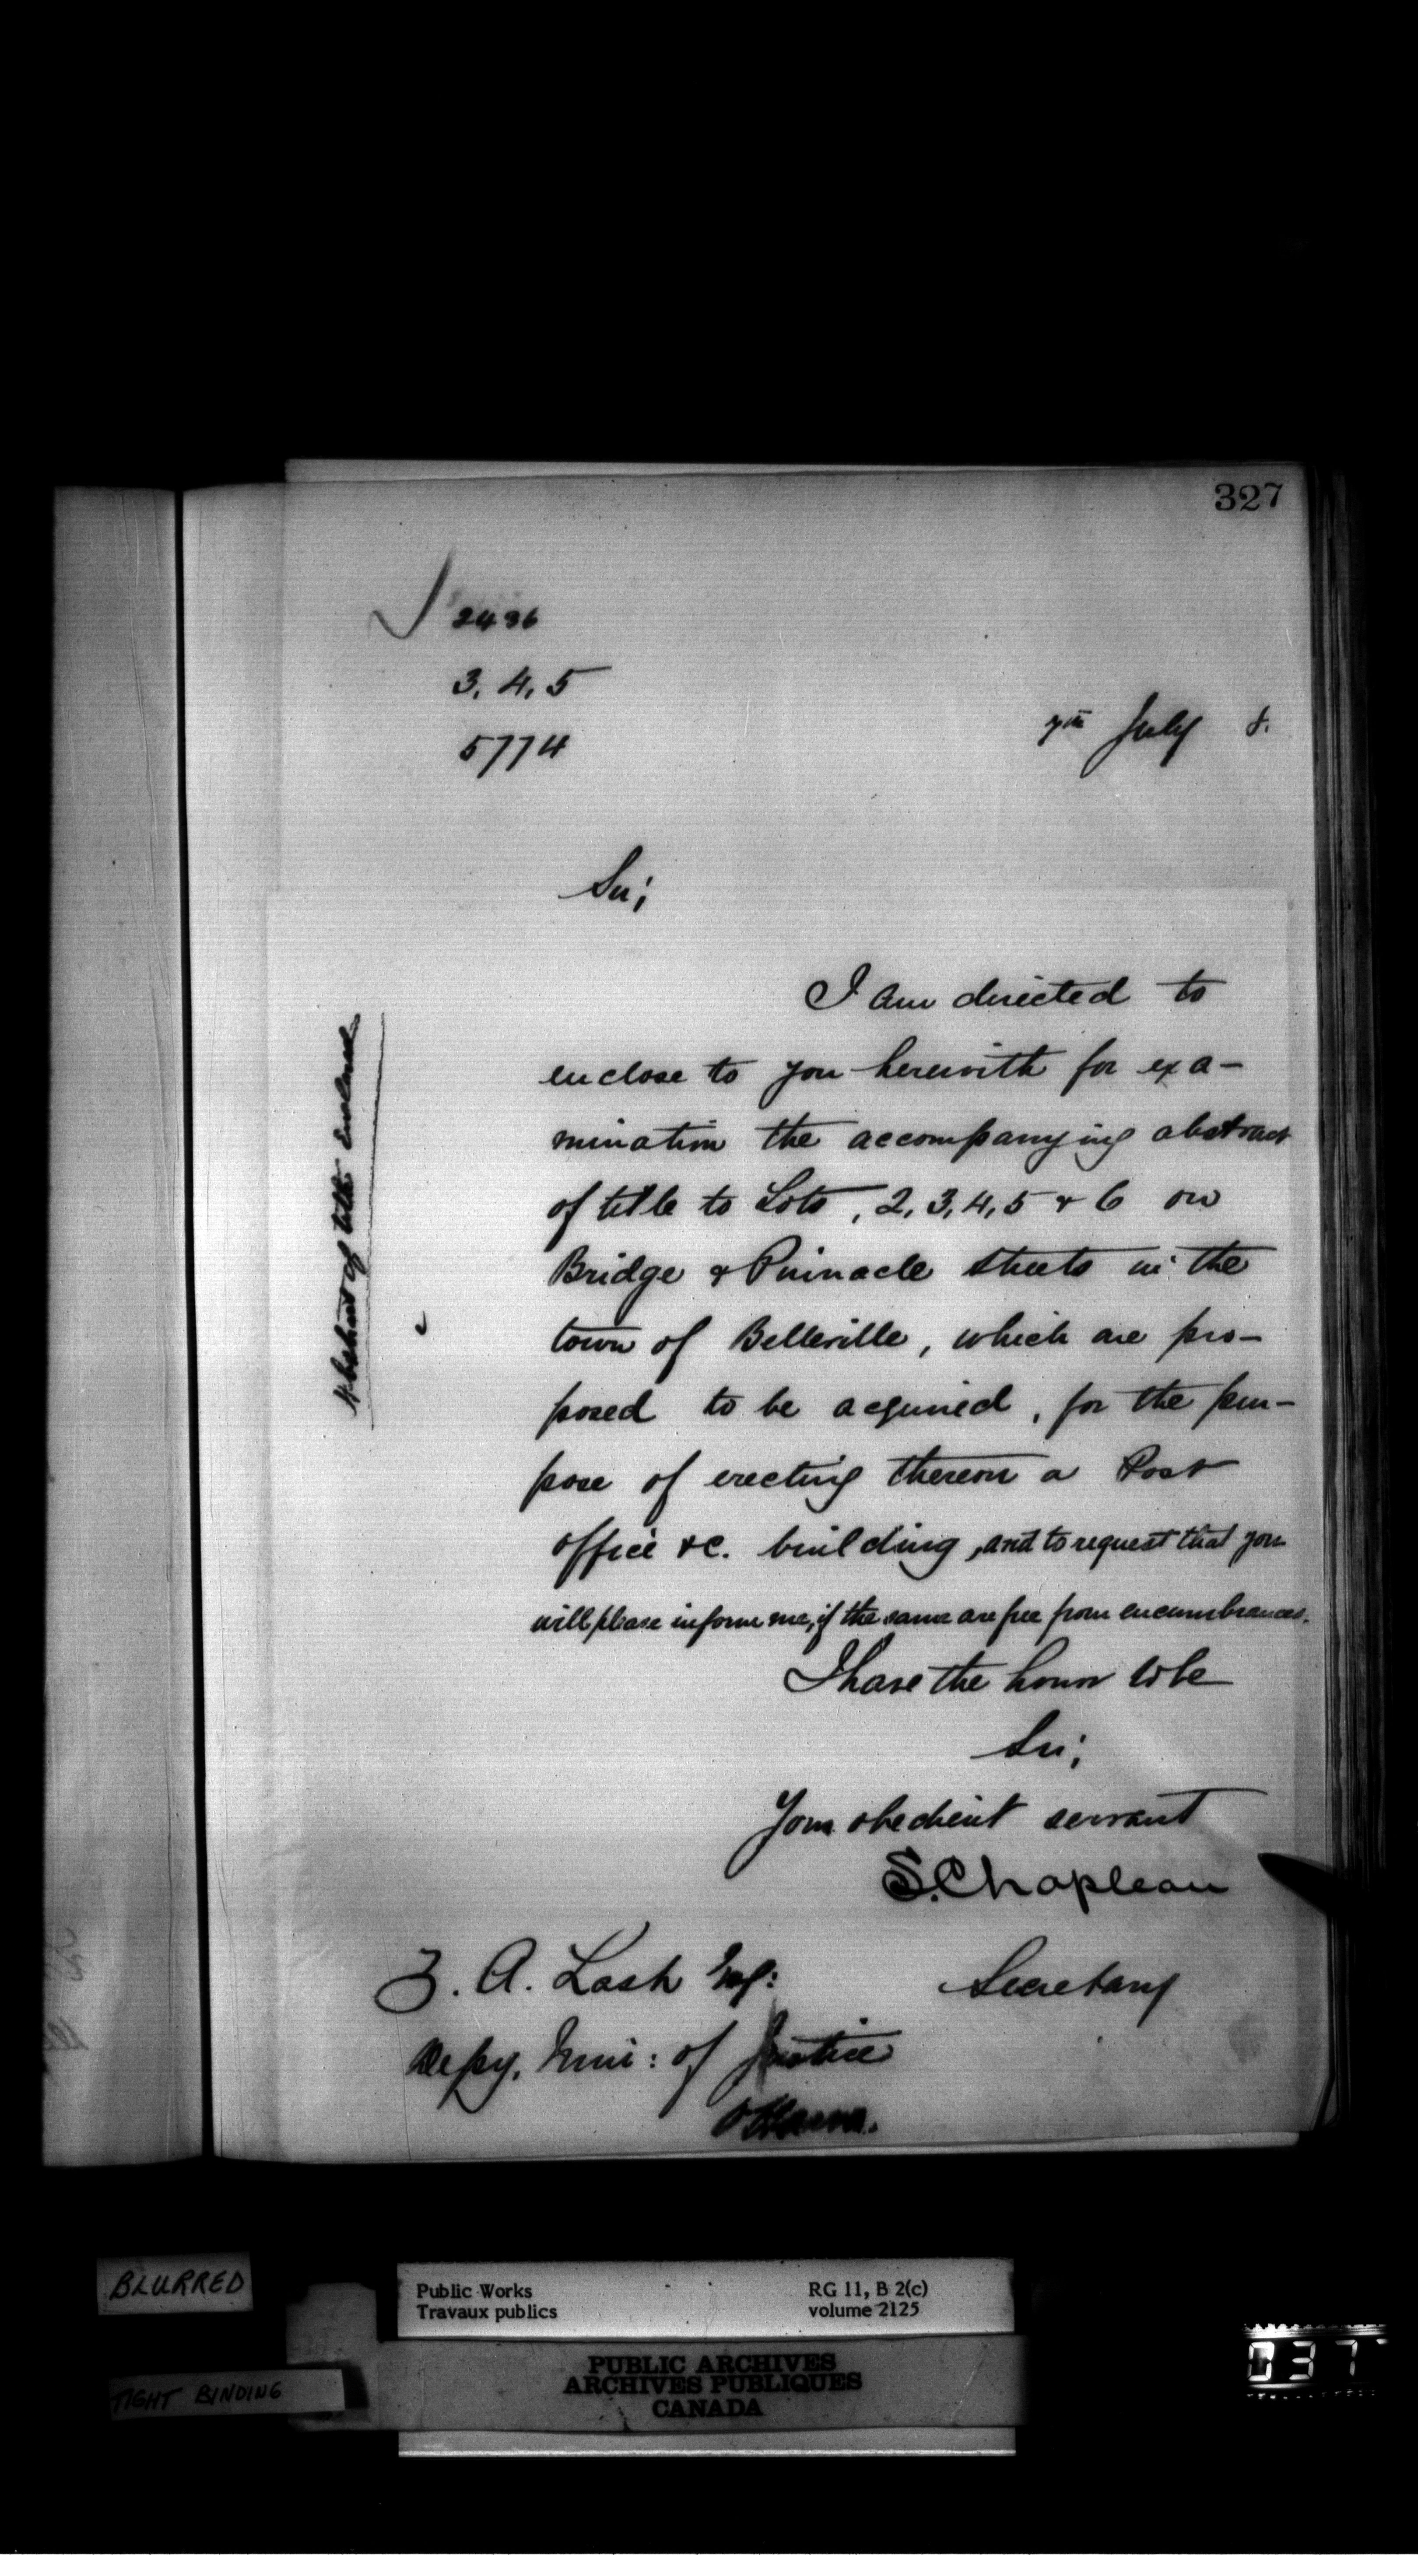 327
2436
3, 4, 5
5774
7th July 8.
Sir;
I am directed to
enclose to you herewith for exa-
mination the accompanying abstract
of title to Lots, 2, 3, 4, 5 & 6 on
Bridge & Pinnacle streets in the
town of Belleville, which are pro-
posed to be acquired, for the pur-
pose of erecting thereon a Post
office &c. building, and to request that you
will please inform me, if the same are free from encumbrances.
I have the honor to be
Sir;
Your obedient servant
S. Chapleau
Secretary
Z. A. Lash Esq:
Depy. Mini: of Justice
Ottawa.
Abstract of title Enclosed
BLURRED
TIGHT BINDING
Public Works RG 11, B 2(c)
Travaux publics volume 2125
PUBLIC ARCHIVES
ARCHIVES PUBLIQUES
CANADA
037